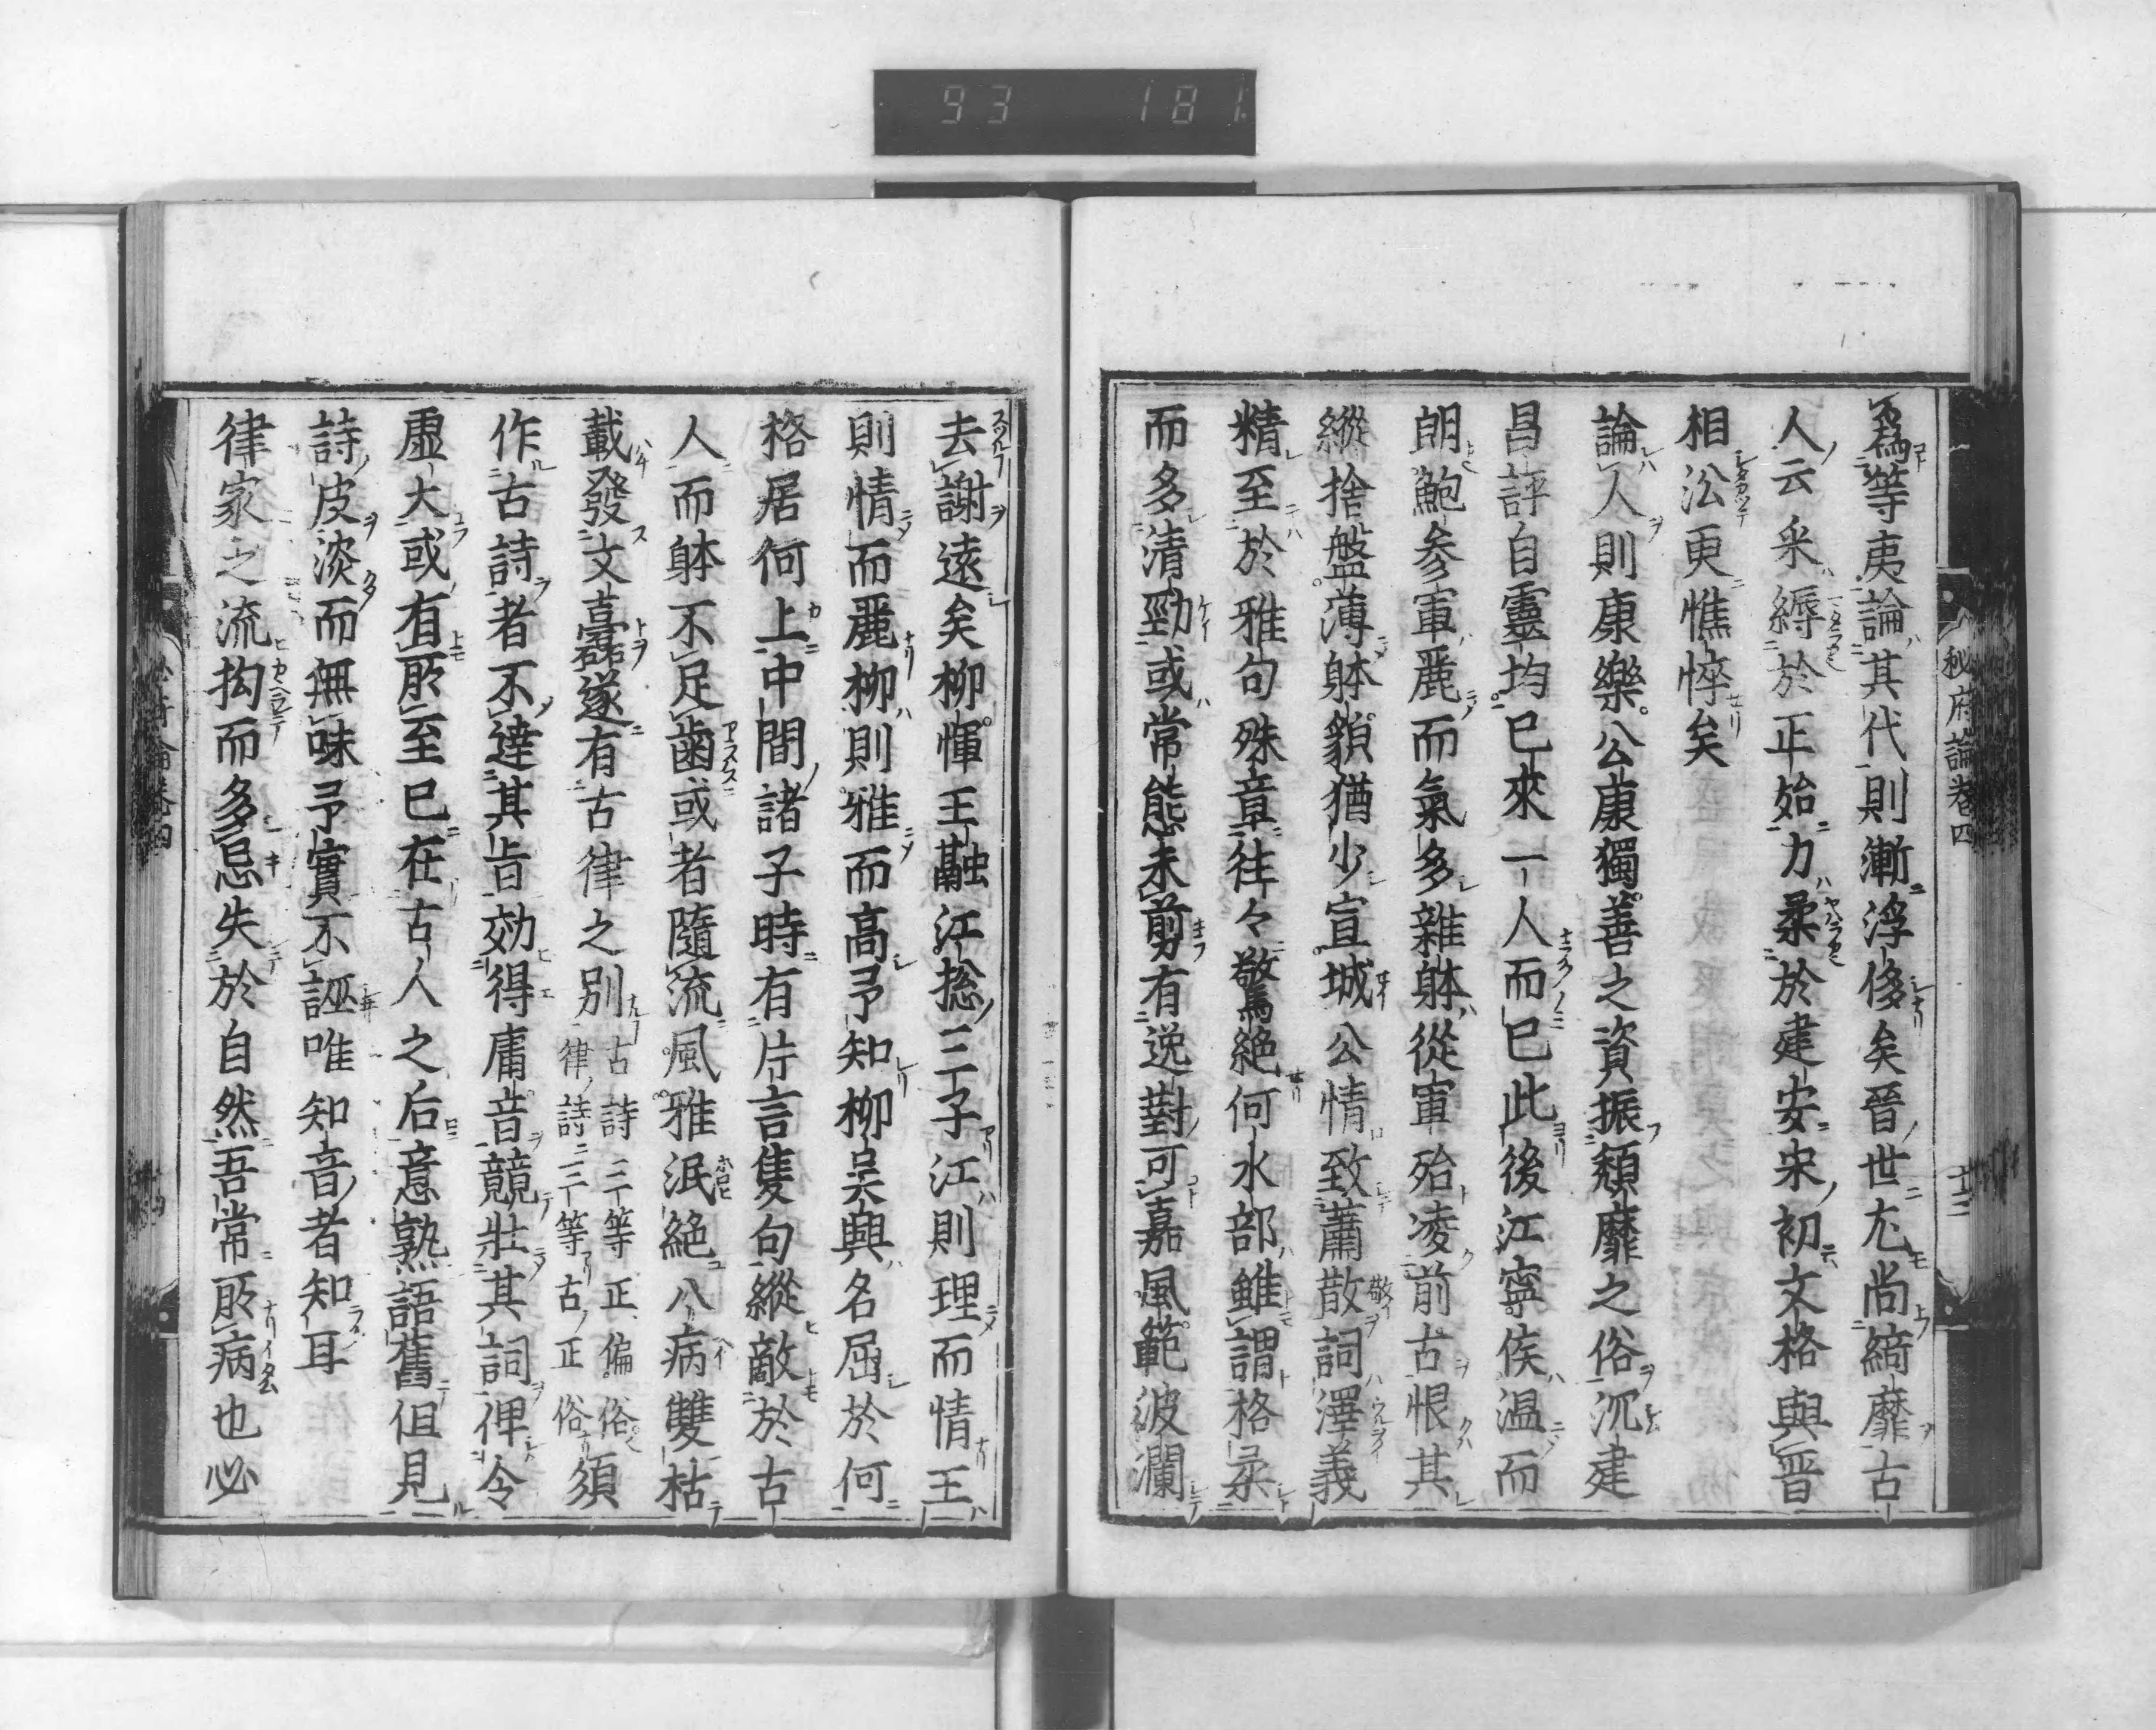 93 181
秘府論卷四
十二
爲等夷論其代則漸浮侈矣晉世尤尚綺靡古
人云采縟於正始力柔於建安宋初文格與晉
相沿更憔悴矣
論人則康樂公秉獨善之資振頽靡之俗沉建
昌評自靈均已來一人而已此後江寧侯温而
朗鮑参軍麗而氣多雜躰從軍殆凌前古恨其
縱捨盤薄躰貌猶少宣城公情致蕭散詞澤義
精至於雅句殊章往々驚絶何水部雖謂格柔
而多清勁或常態未剪有逸對可嘉風範波瀾
去謝遠矣柳惲王融江揔三子江則理而情王
則情而麗柳則雅而高予知柳吴興名屈於何
格居何上中間諸子時有片言隻句縱敵於古
人而躰不足齒或者隨流風雅泯絶八病雙枯
載發文蠧遂有古律之別古詩三等正偏俗律詩三等古正俗須
作古詩者不達其旨効得庸音競壯其詞俾令
虚大或有所至已在古人之后意熟語舊但見
詩皮淡而無味予實不誣唯知音者知耳
律家之流拘而多忌失於自然吾常所病也必